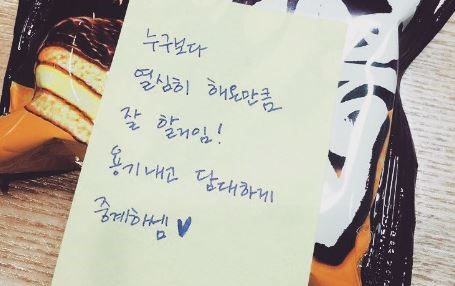 누구보다
열심히 해온만큼
잘 할거임!
용기내고 담대하게
중계하쎔♥